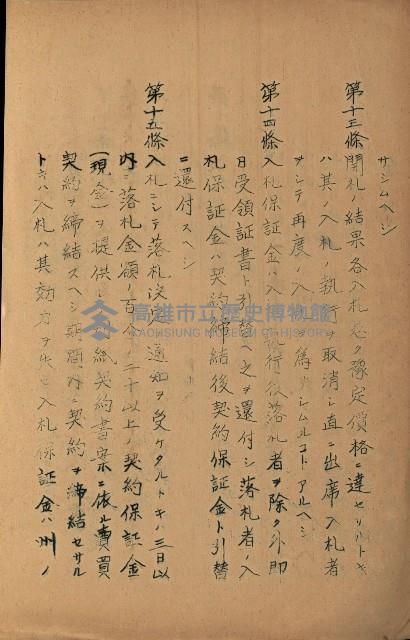 サシムヘシ
第十三條 開札ノ結果各入札悉ク豫定價格ニ達セサルトキ
ハ其ノ入札ノ執行ヲ取消シ直ニ出席入札者
ヲシテ再度ノ入札ヲ為サシムルコトアルヘシ
第十四條 入札保証金ハ入札執行後落札者ヲ除ク外即
日受領証書ト引替ヘ之ヲ還付シ落札者ノ入
札保証金ハ契約締結後契約保証金ト引替
ニ還付スヘシ
第十五條 入札ニシテ落札決定ノ通知ヲ受ケタルトキハ三日以
内ニ落札金額ノ百分ノ二十以上ノ契約保証金
(現金)ヲ提供シ別紙契約書案ニ依ル賣買
契約ヲ締結スヘシ期間内ニ契約ヲ締結セサル
トキハ入札ハ其効力ヲ失ヒ入札保証金ハ州ノ
高雄市立歷史博物館
KAOHSIUNG MUSEUM OF HISTORY